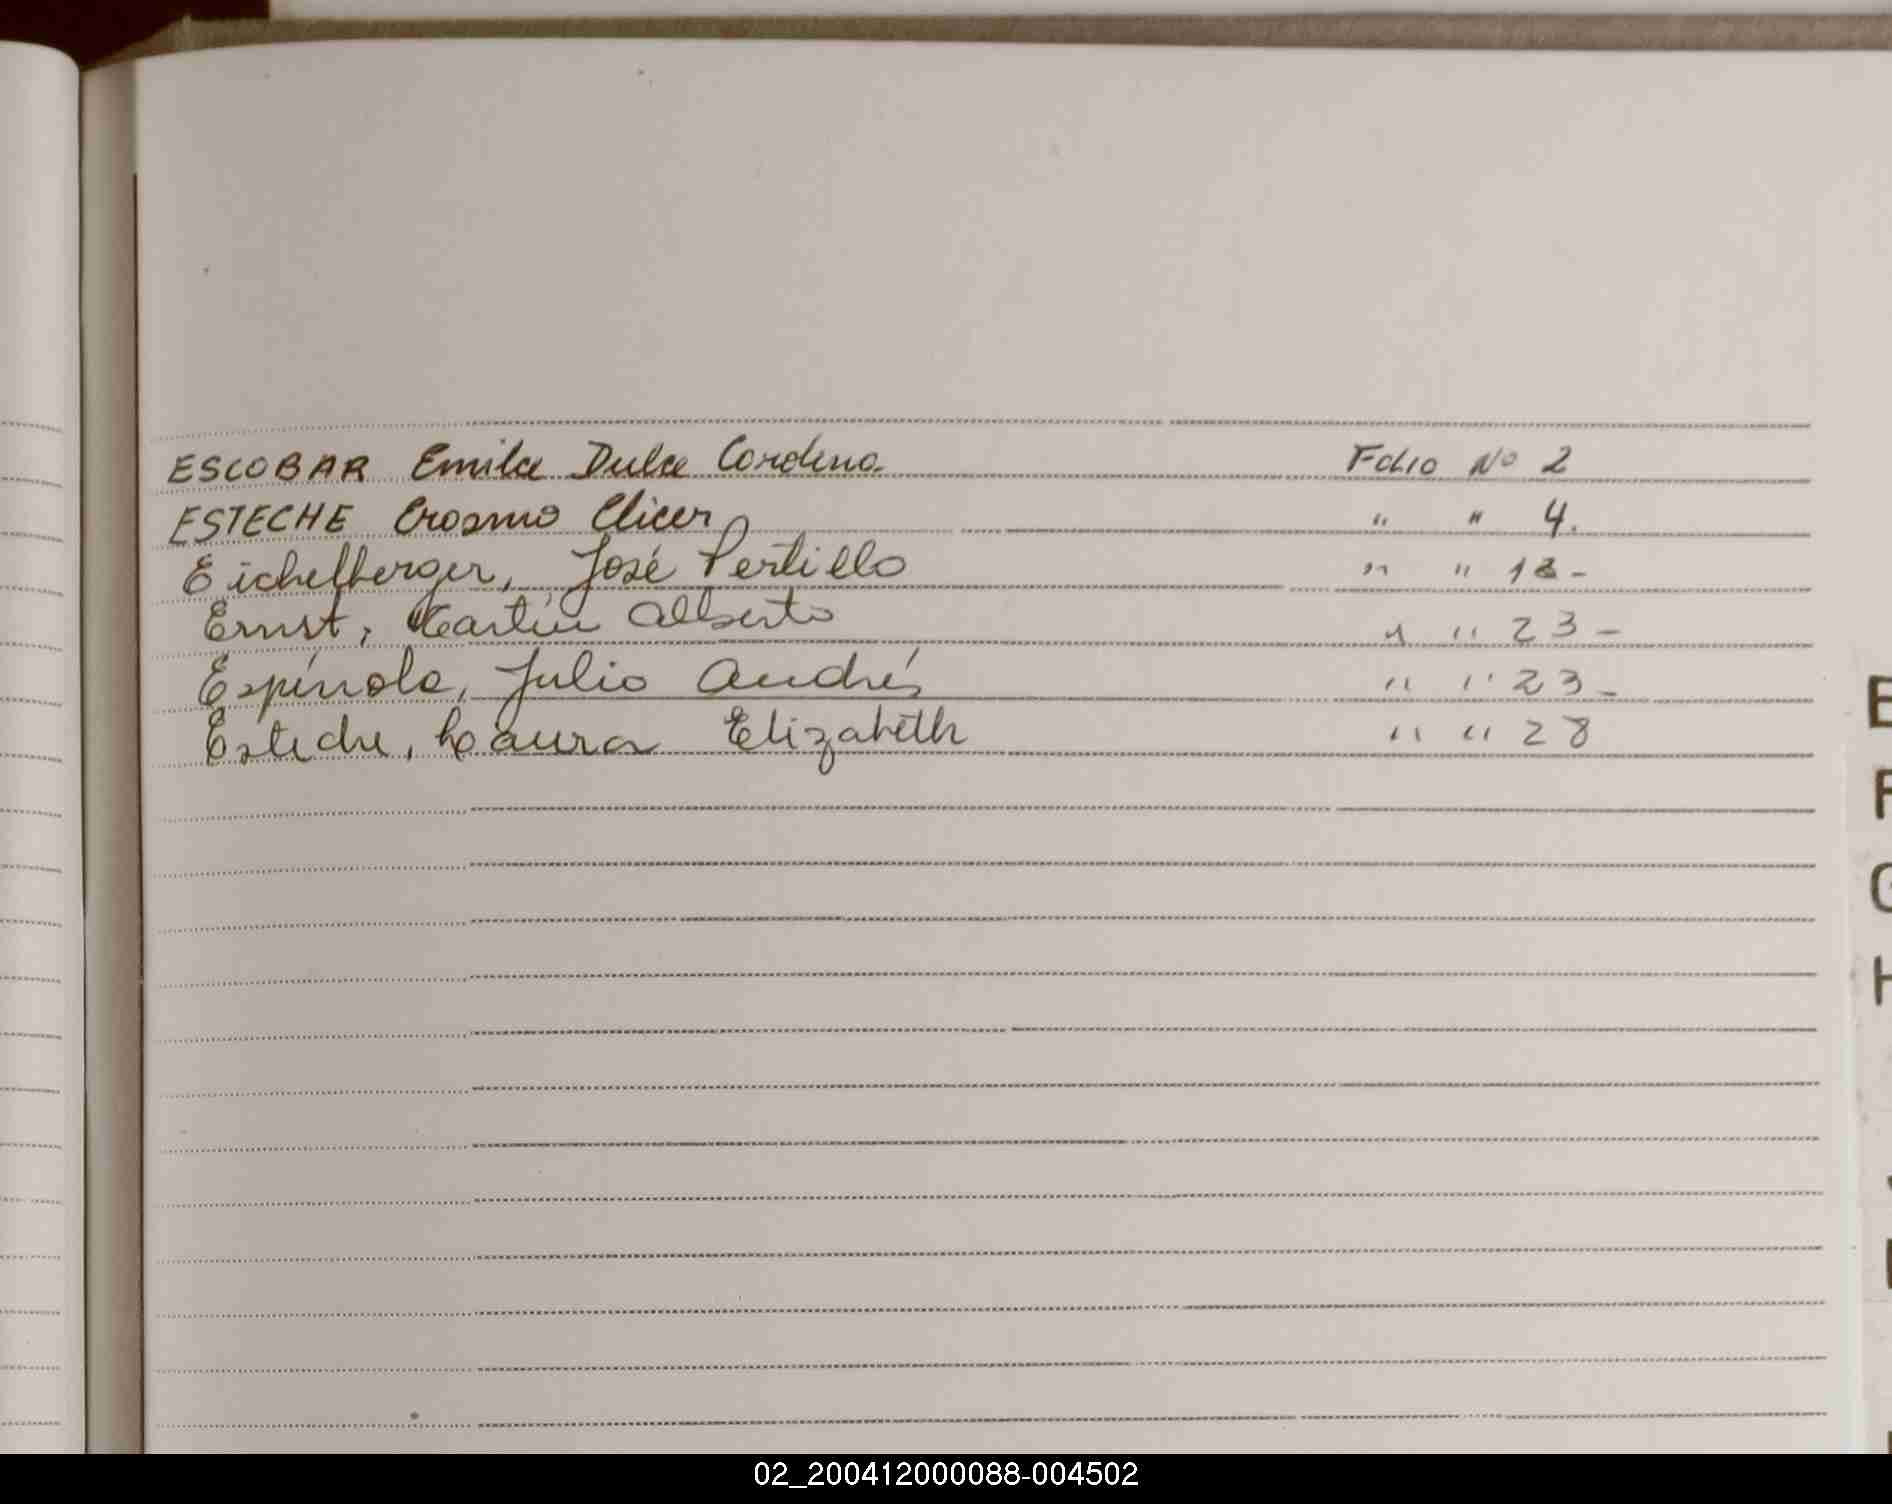 ESCOBAR Emilce Dulce Cordena Folio Nº 2
ESTECHE Erosmo Elicer " " 4.
Eichelberger, José Pertillo " " 18-
Ernst, Martín Alberto " " 23-
Espínola, Julio Andrés " " 23-
Esteche, Laura Elizabeth " " 28
E
F
G
H
02_200412000088-004502